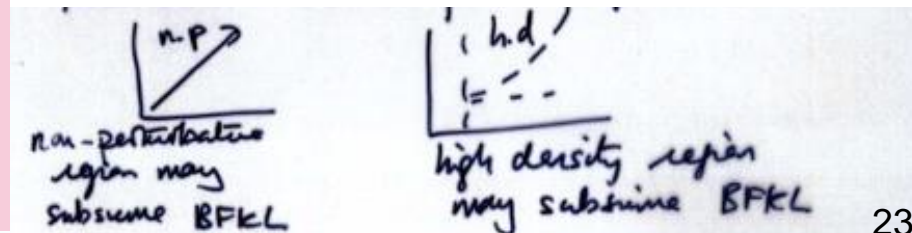 n-p
non-perturbative
region may
subsume BFKL
h.d
high density region
may subsume BFKL
23